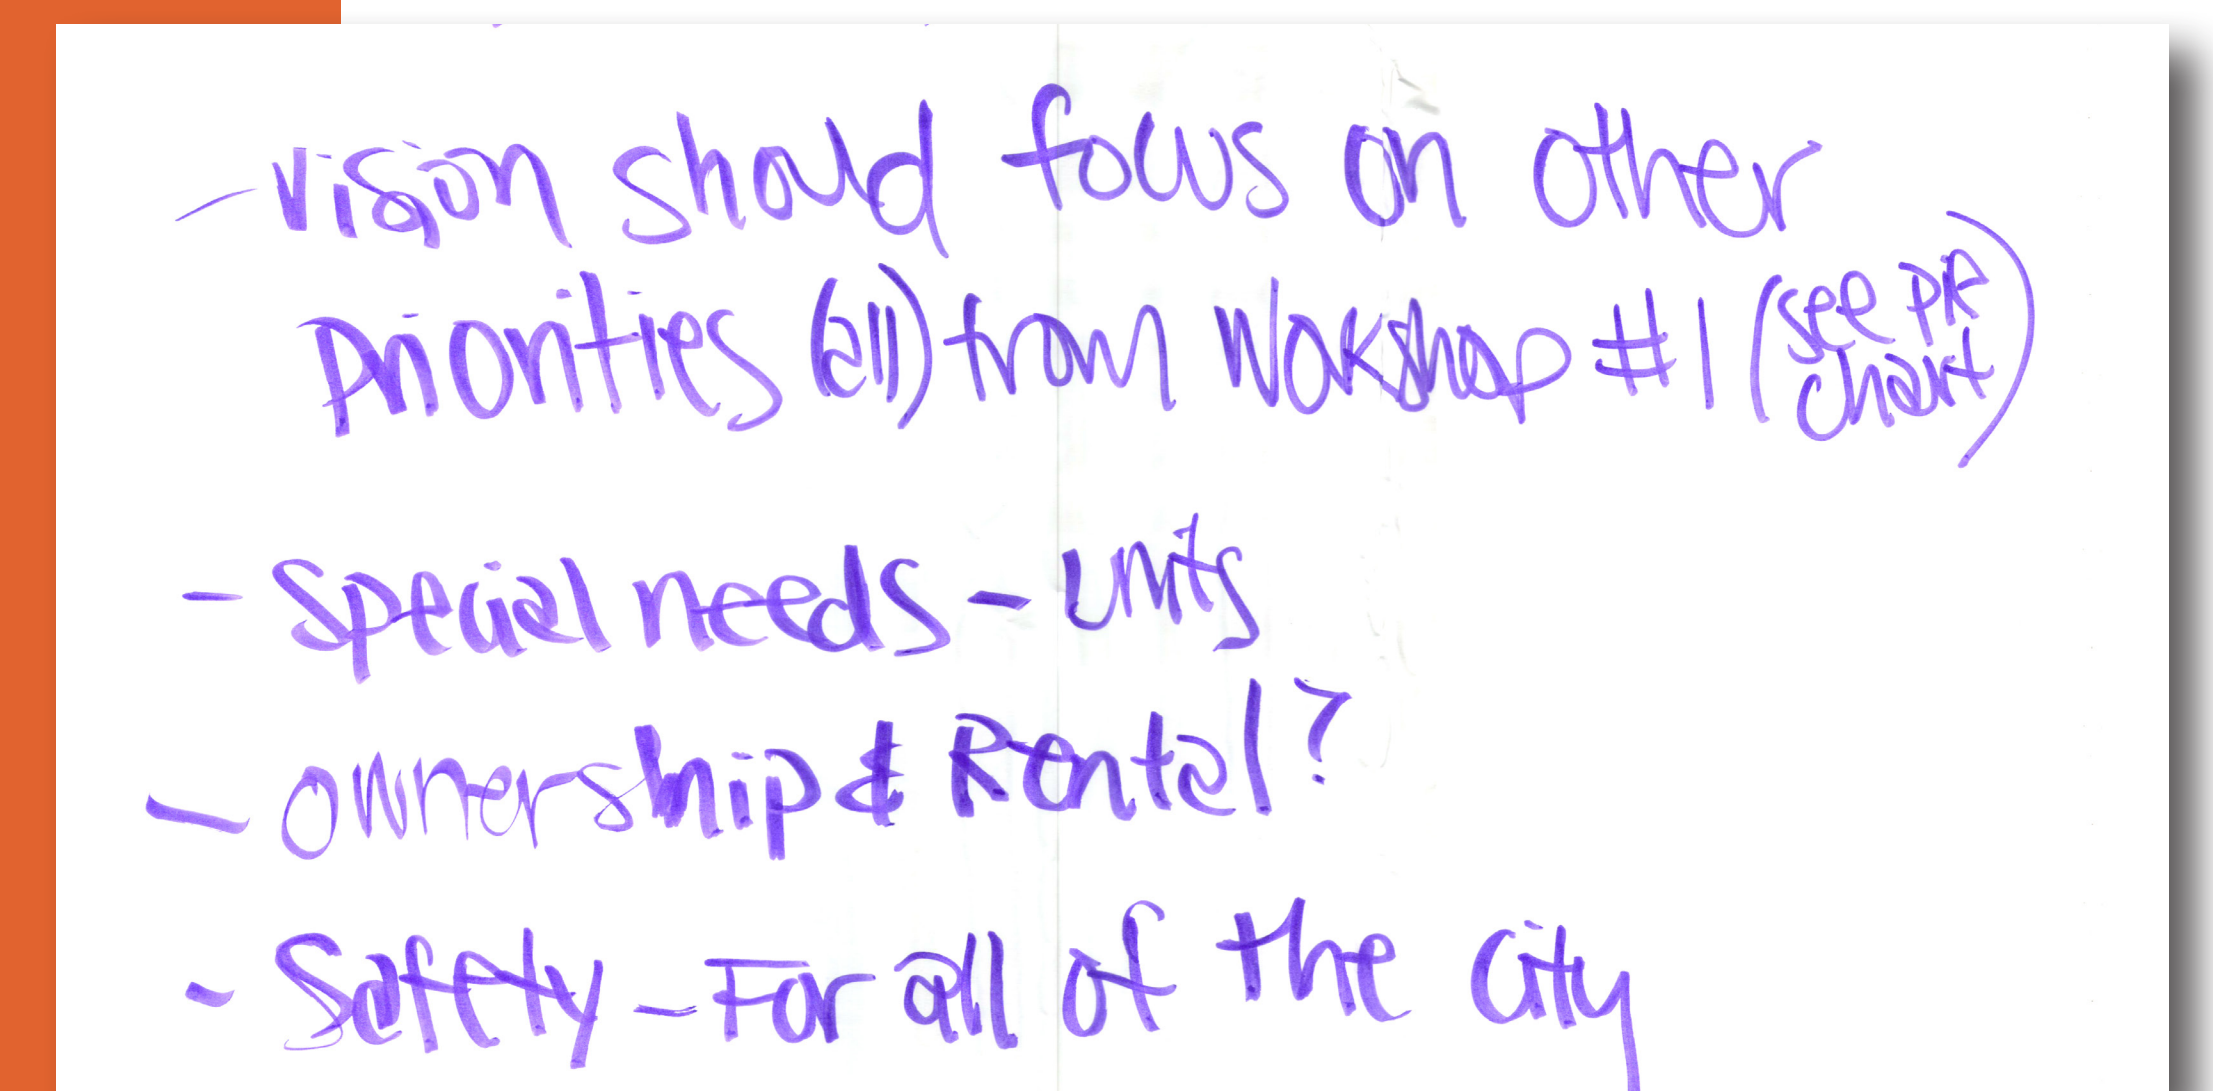 - Vision should focus on other
Priorities (all) from Wokshop #1 (see pie
chart)
- Special needs - units
- ownership & Rental?
- Safety - For all of the city